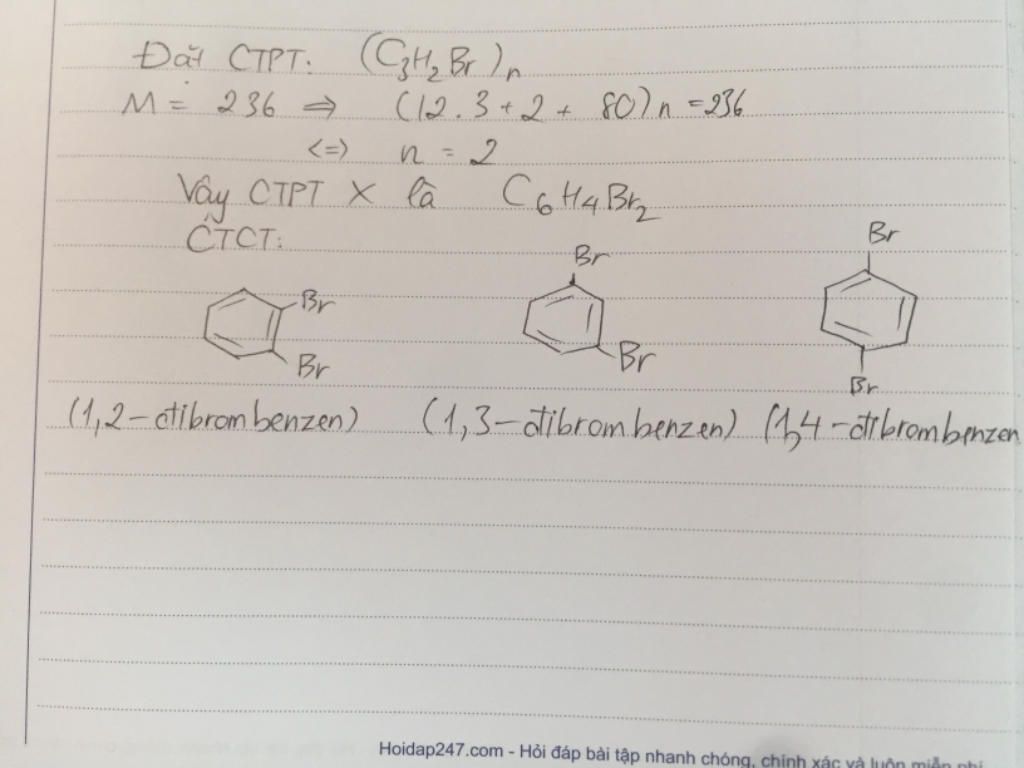 Đặt CTPT: (C₃H₂Br)n
M = 236 ⇒ (12.3 + 2 + 80)n = 236
<=> n = 2
Vậy CTPT X là C₆H₄Br₂
CTCT:
Br Br Br
Br Br Br
(1,2-đibrombenzen) (1,3-đibrombenzen) (1,4-đibrombenzen
Hoidap247.com - Hỏi đáp bài tập nhanh chóng, chính xác và luôn miễn phí